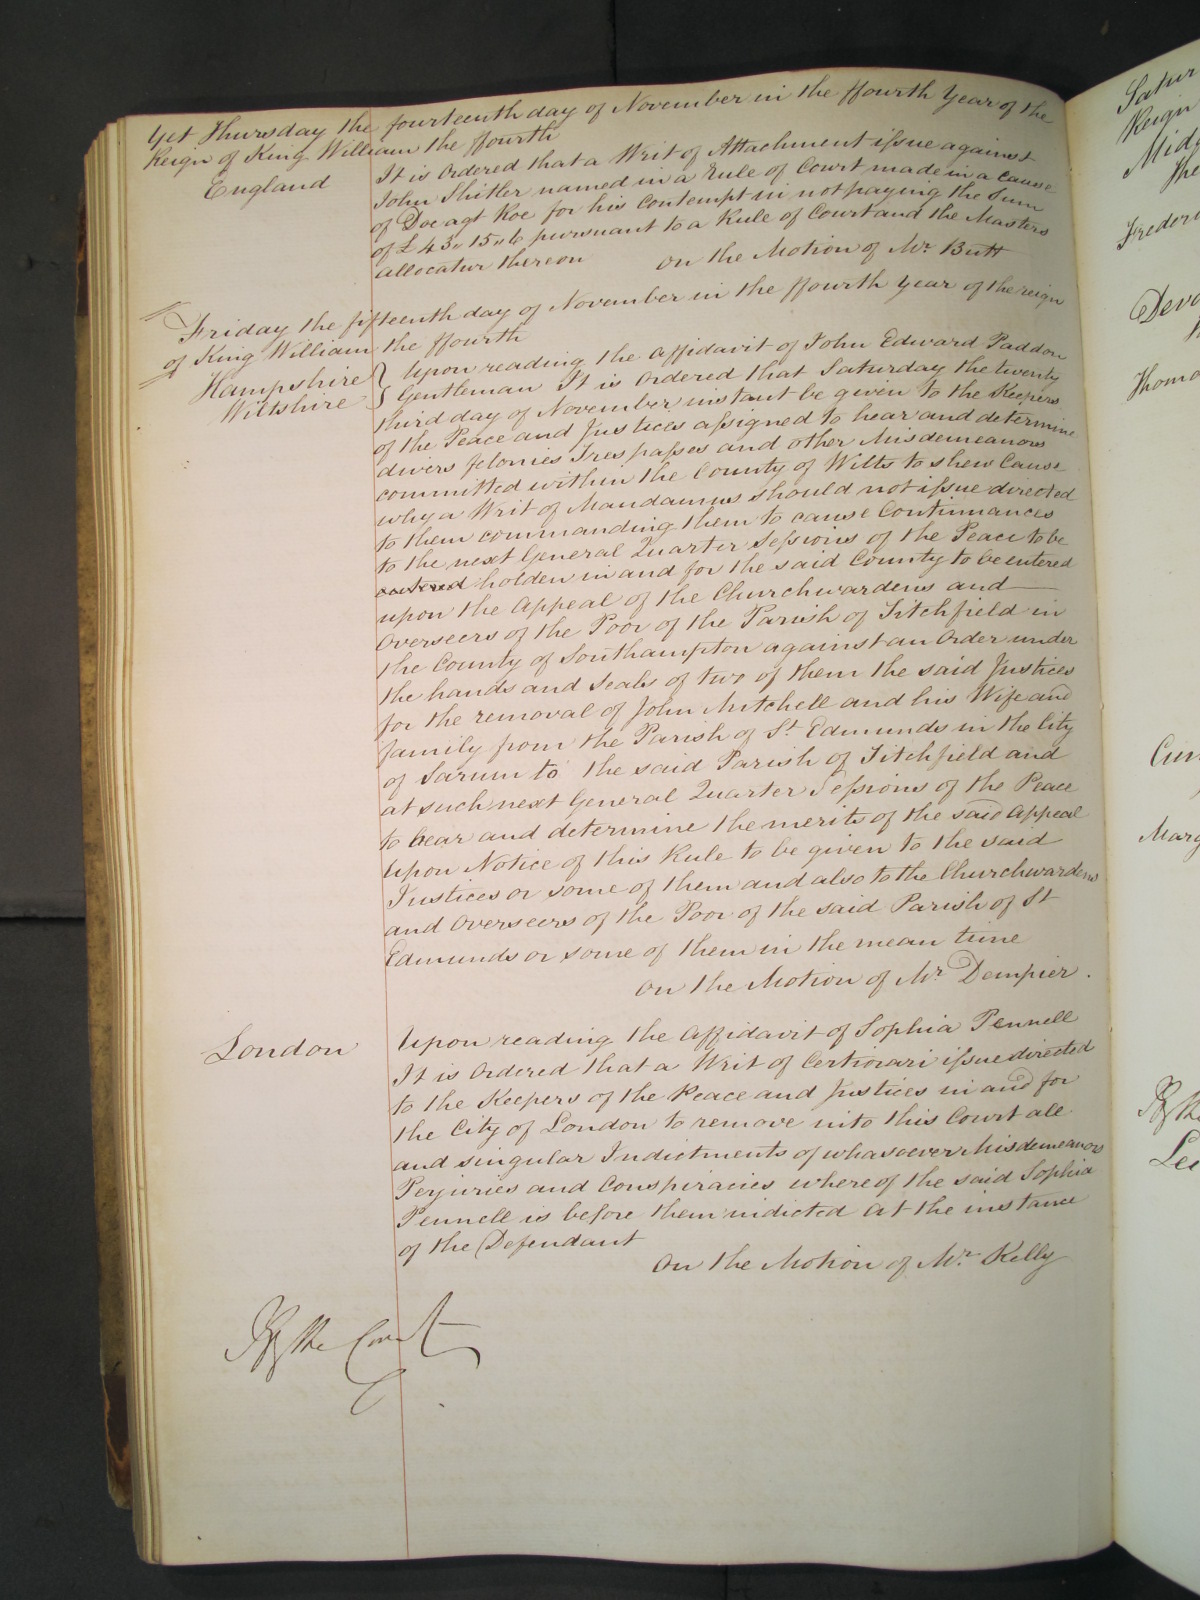 Yet Thursday the fourteenth day of November in the ffourth Year of the
Reign of King William the ffourth
England
It is Ordered that a Writ of Attachment issue against
John Shitler named in a Rule of Court made in a cause
of Doe agt Roe for his Contempt in not paying the Sum
of £43"15"6 pursuant to a Rule of Court and the Masters
allocatur thereon on the Motion of Mr. Butt
Friday the fifteenth day of November in the ffourth Year of the reign
of King William the ffourth
Hampshire
Wiltshire
Upon reading the affidavit of John Edward Paddon
Gentleman It is Ordered that Saturday the twenty
third day of November instant be given to the Keepers
of the Peace and Justices assigned to hear and determine
divers felonies Trespasses and other Misdemeanors
committed within the County of Wilts to shew Cause
why a Writ of Mandamus should not issue directed
to them commanding them to cause Continuances
to the next General Quarter Sessions of the Peace to be
entered holden in and for the said County to be entered
upon the Appeal of the Churchwardens and
Overseers of the Poor of the Parish of Titchfield in
the County of Southampton against an Order under
the hands and Seals of two of them the said Justices
for the removal of John Mitchell and his Wife and
family from the Parish of St. Edmunds in the City
of Sarum to the said Parish of Titchfield and
at such next General Quarter Sessions of the Peace
to hear and determine the merits of the said Appeal
Upon Notice of this Rule to be given to the said
Justices or some of them and also to the Churchwardens
and Overseers of the Poor of the said Parish of St
Edmunds or some of them in the mean time
on the Motion of Mr Dempier.
London
Upon reading the Affidavit of Sophia Pennell
It is Ordered that a Writ of Certiorari issue directed
to the Keepers of the Peace and Justices in and for
the City of London to remove into this Court all
and singular Indictments of whatsoever Misdemeanors
Perjuries and Conspiracies whereof the said Sophia
Pennell is before them indicted at the instance
of the Defendant
On the Motion of Mr. Kelly
By the Court
Satur
Reign
Midd
The
Frederi
Devo
Thoma
Marg
By the
Lee